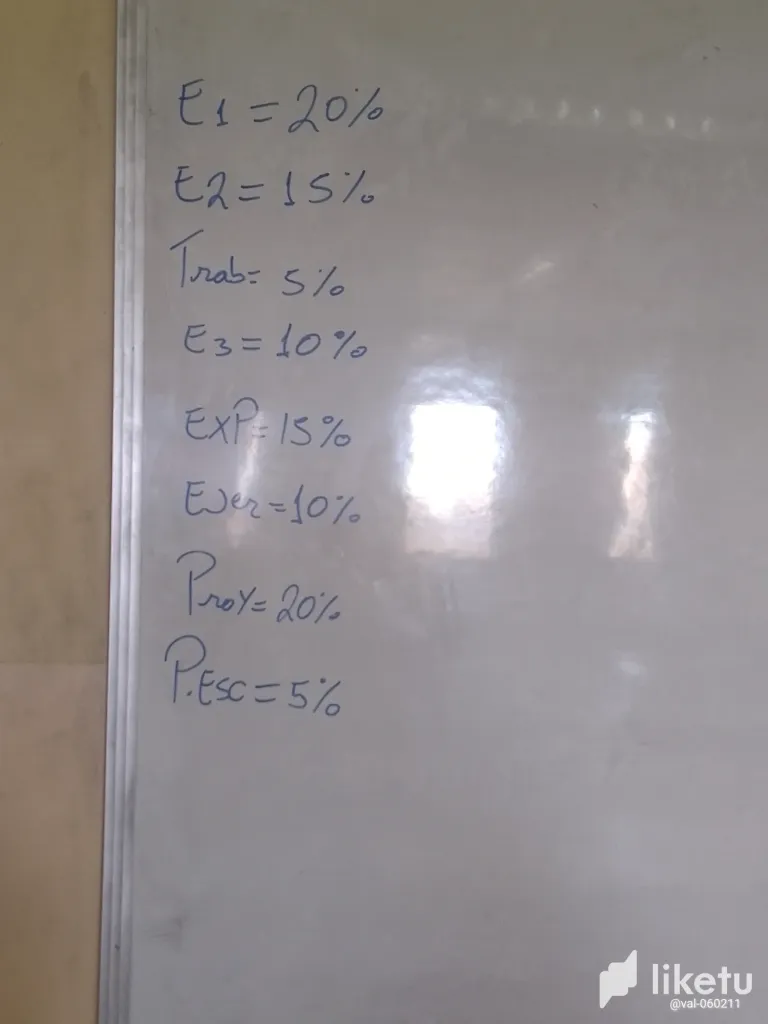 E1 = 20%
E2 = 15%
Trab = 5%
E3 = 10%
EXP = 15%
EJer = 10%
ProY = 20%
P.ESC = 5%
liketu
@val-060211